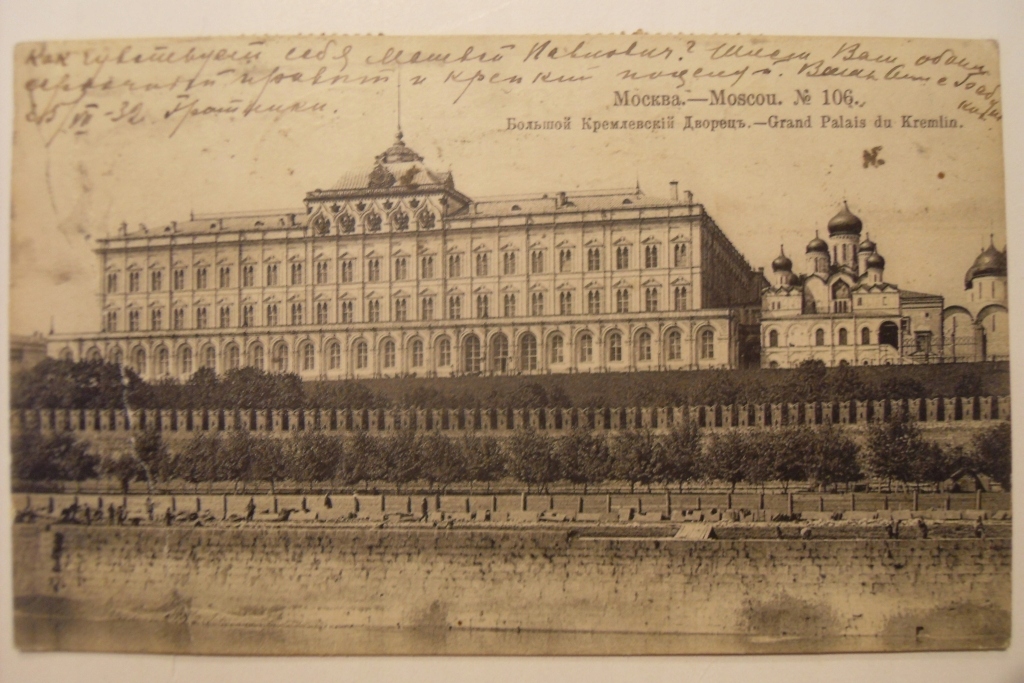 Как чувствуете себя Матвей Павлович? Шлем Вам обоим
сердечный привет и крепкий поцелуй. Ваш
25/VI-32.
Москва.—Moscou. № 106.
Большой Кремлевскій Дворецъ.—Grand Palais du Kremlin.